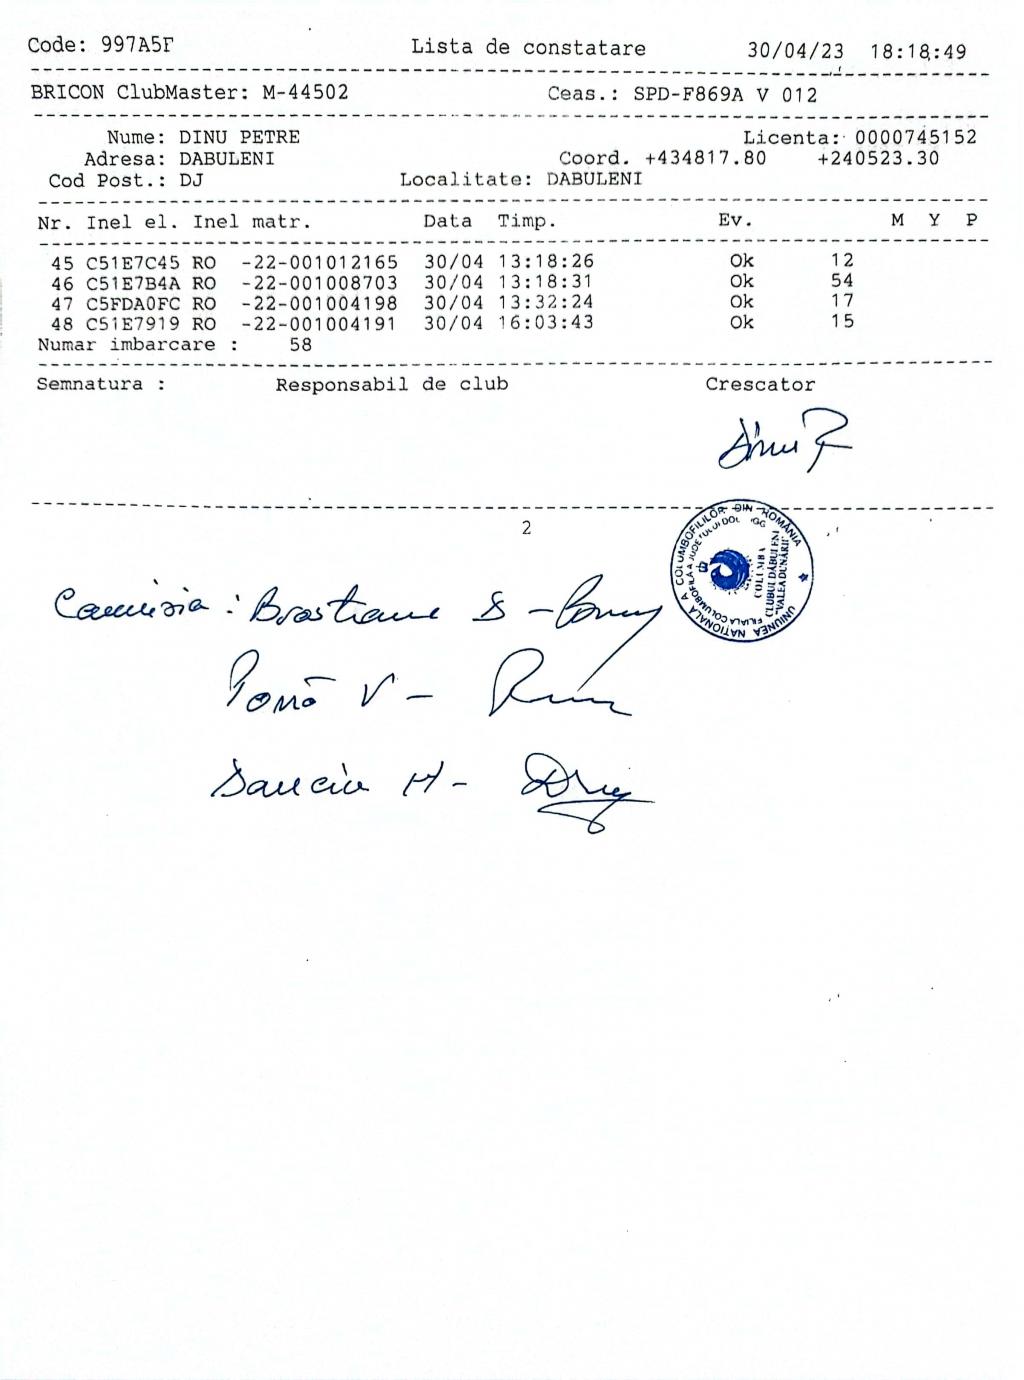 Code: 997A5F Lista de constatare 30/04/23 18:18:49
BRICON ClubMaster: M-44502 Ceas.: SPD-F869A V 012
Nume: DINU PETRE Licenta: 0000745152
Adresa: DABULENI Coord. +434817.80 +240523.30
Cod Post.: DJ Localitate: DABULENI
Nr. Inel el. Inel matr. Data Timp. Ev. M Y P
45 C51E7C45 RO -22-001012165 30/04 13:18:26 Ok 12
46 C51E7B4A RO -22-001008703 30/04 13:18:31 Ok 54
47 C5FDA0FC RO -22-001004198 30/04 13:32:24 Ok 17
48 C51E7919 RO -22-001004191 30/04 16:03:43 Ok 15
Numar imbarcare : 58
Semnatura : Responsabil de club Crescator
Dinu P
2
UNIUNEA NATIONALA A COLUMBOFILILOR DIN ROMÂNIA
FILIALA COLUMBOFILĂ A JUDEŢULUI DOLJ
COLUMBA
CLUBUL DĂBULENI
"VALEA DUNĂRII"
Comisia :
V -
H -